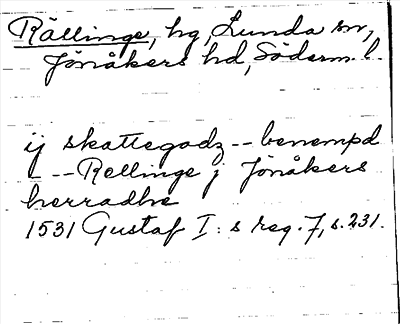 Rällinge, hg, Lunda sn,
Jönåkers hd, Söderm. l.
ij skattegodz -- benempd
-- Rellinge j Jönåkers
herradhe
1531 Gustaf I: s reg. 7, s. 231.